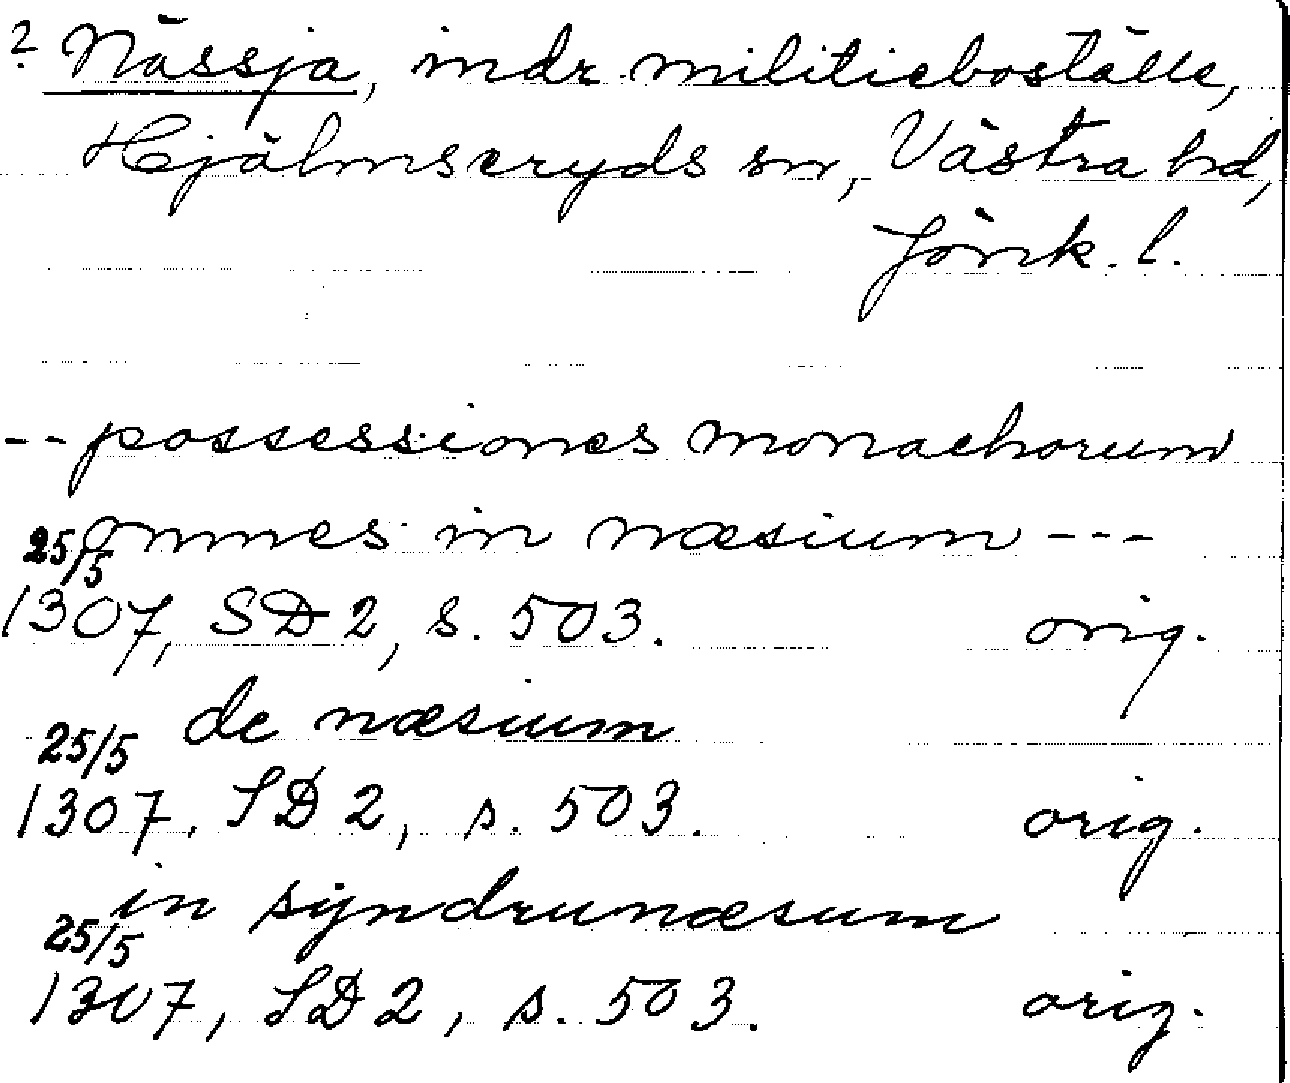 ? Nässja, indr militieboställe,
Hjälmseryds sn, Västra hd,
Jönk. l.
-- possessiones monachorum
omnes in næsium ---
25/5
1307, SD 2, s. 503. orig.
de næsium
25/5
1307. SD 2, s. 503. orig.
in syndrunæsum
25/5
1307, SD 2, s. 503. orig.